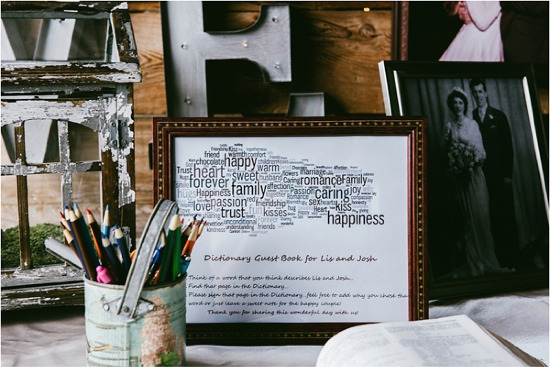 E
friend warmth comfort
chocolate happy
Trust heart sweet marriage
romance Family
forever family affection Caring Passion
Happiness caring joy
passion friendship sex kiss
love trust kisses Heart happiness
unconditional
understanding friends
Dictionary Guest Book for Lis and Josh
Think of a word that you think describes Lis and Josh...
Find that page in the Dictionary...
Please sign that page in the Dictionary...feel free to add why you chose that
word or just leave a sweet note for the happy couple!
Thank you for sharing this wonderful day with us!